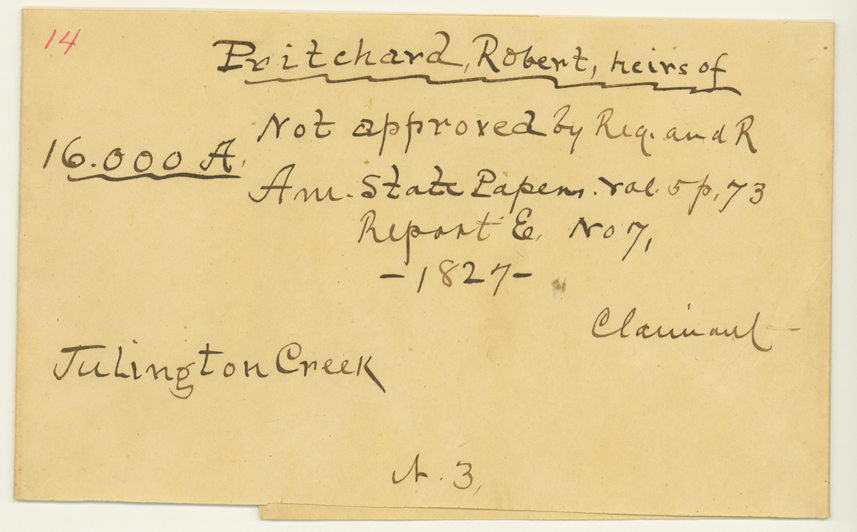 14
Pritchard, Robert, heirs of
Not approved by Reg. and R
16.000 A.
Am. State Papers. Vol. 5 p, 73
Report E. No 7,
-1827-
Claimant -
Julington Creek
N. 3,